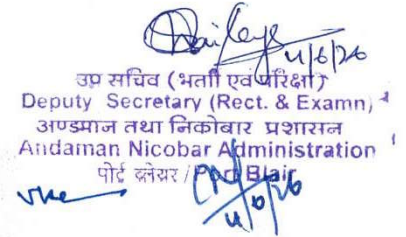 4/6/26
उप सचिव (भर्ती एवं परिक्षा)
Deputy Secretary (Rect. & Examn)
अण्डमान तथा निकोबार प्रशासन
Andaman Nicobar Administration
पोर्ट ब्लेयर / Port Blair
4/6/26